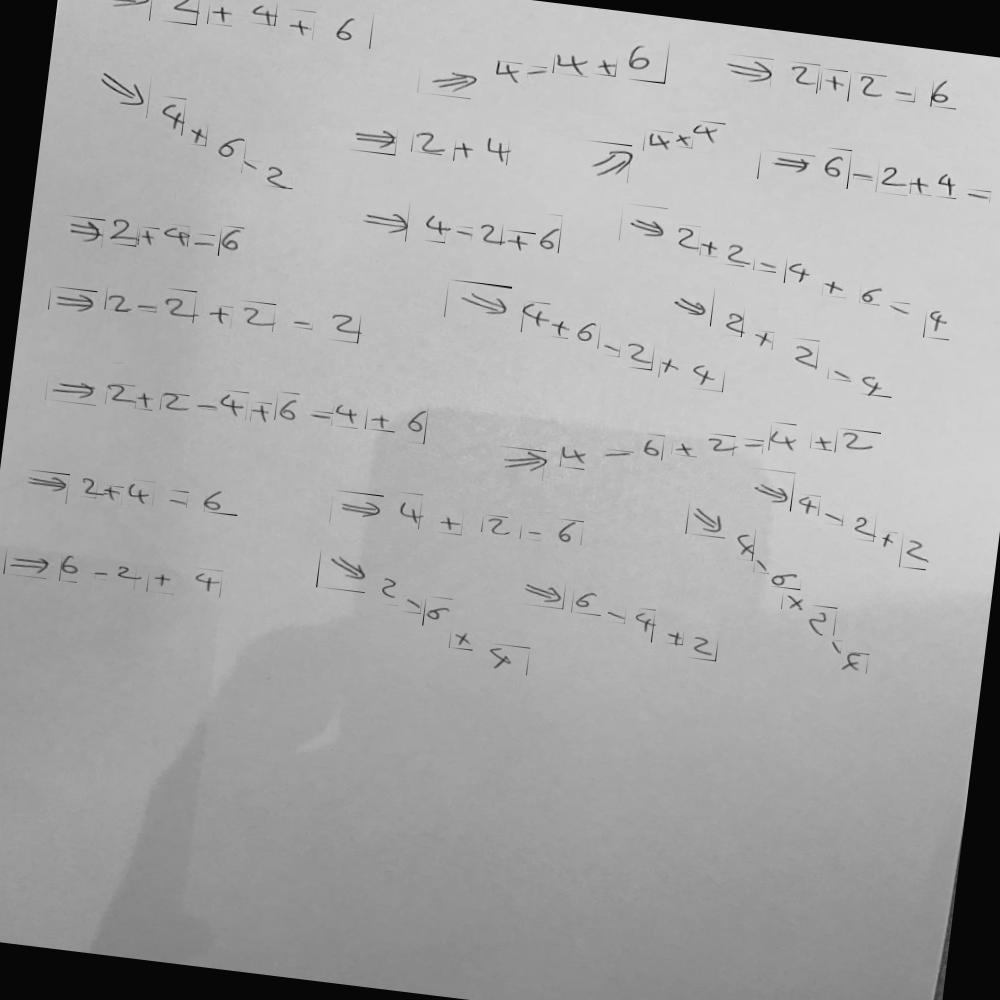 ⇒ 2 + 4 + 6
⇒ 4 = 4 + 6
⇒ 2 + 2 - 6
⇒ 4 + 6 - 2
⇒ 2 + 4
⇒ 4 + 4
⇒ 6 - 2 + 4 =
⇒ 2 + 4 = 6
⇒ 4 - 2 + 6
⇒ 2 + 2 = 4 + 6 = 4
⇒ 2 - 2 + 2 = 2
⇒ 4 + 6 - 2 + 4
⇒ 2 + 2 - 4
⇒ 2 + 2 - 4 + 6 = 4 + 6
⇒ 4 - 6 + 2 = 4 + 2
⇒ 2 + 4 = 6
⇒ 4 + 2 - 6
⇒ 4 - 6 + 2 - 4
⇒ 4 - 2 + 2
⇒ 6 - 2 + 4
⇒ 2 - 6 + 4
⇒ 6 - 4 + 2